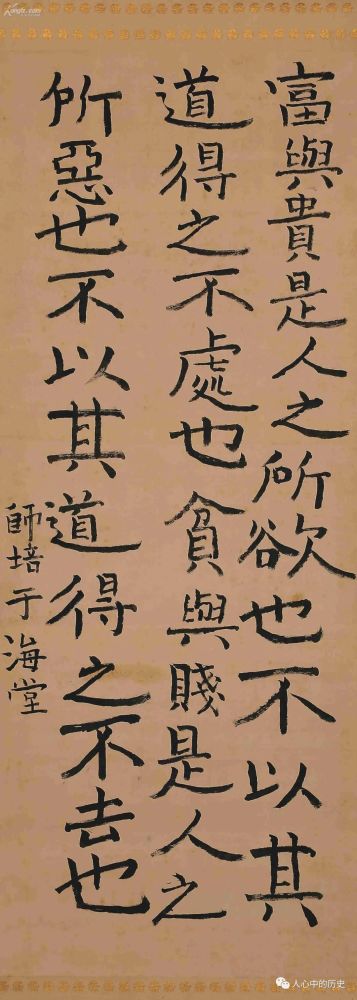 富與貴是人之所欲也不以其
道得之不處也貧與賤是人之
所惡也不以其道得之不去也
師培于海堂
人心中的历史